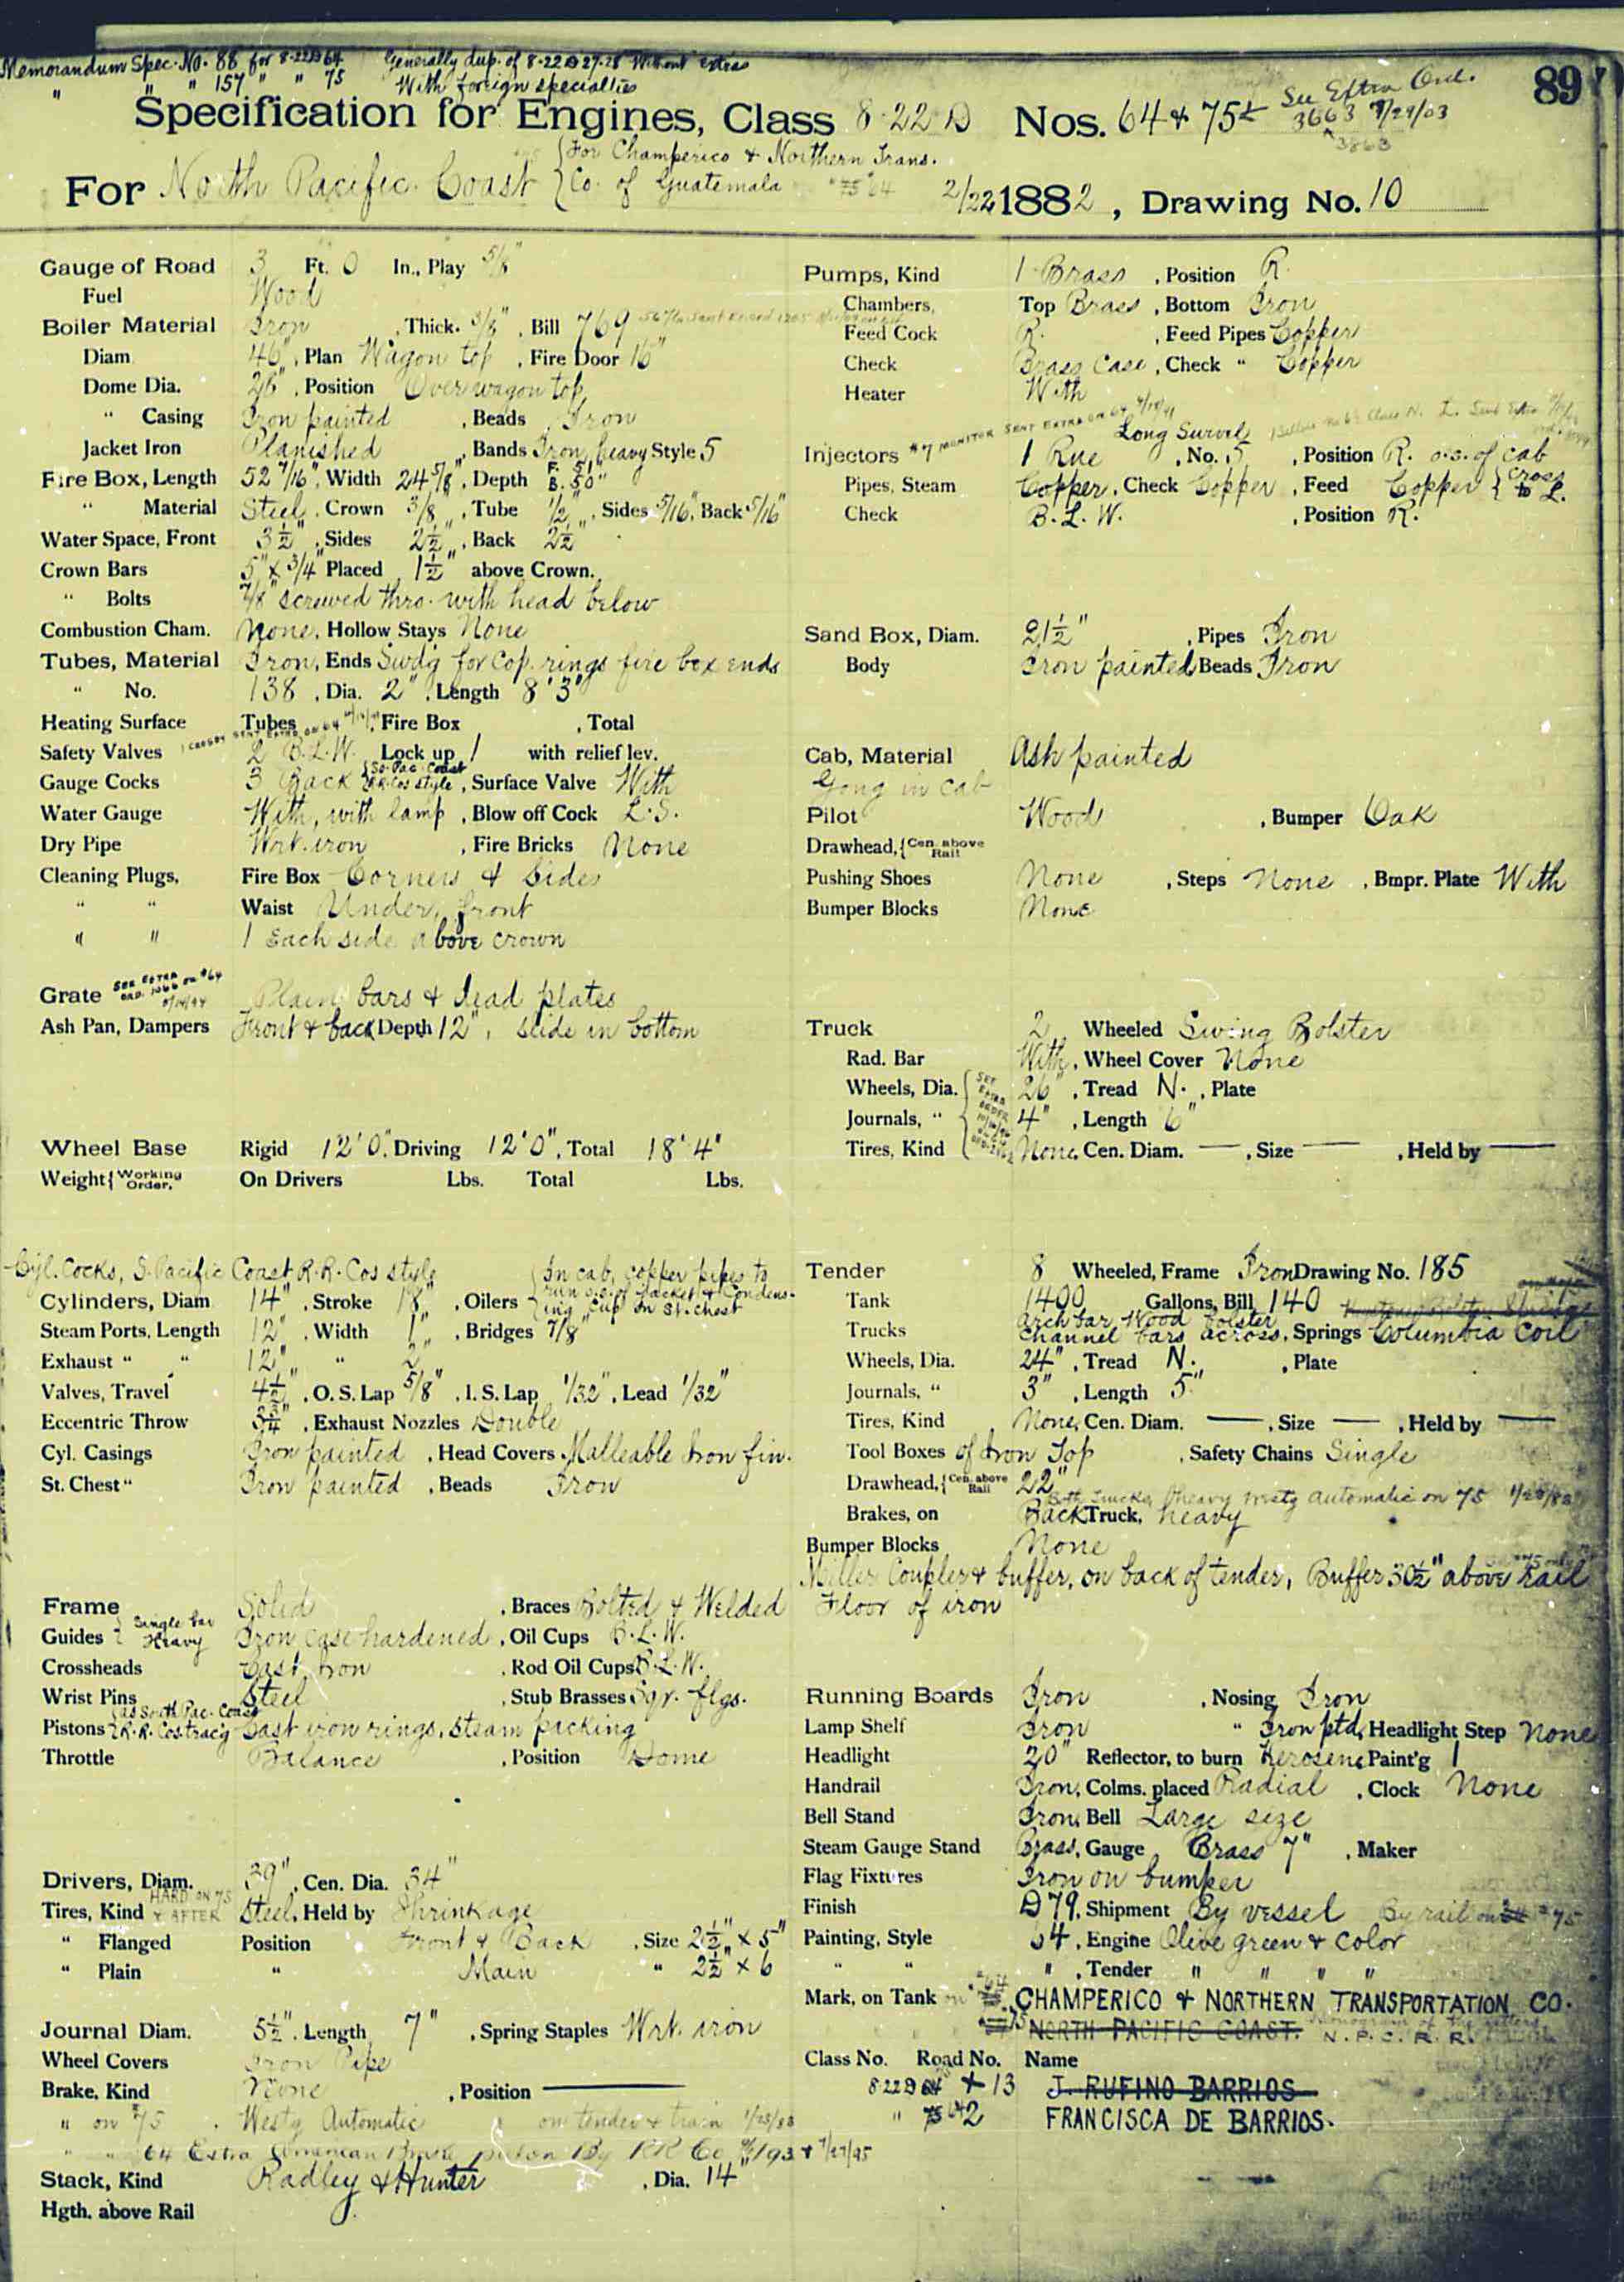 Memorandum Spec. No. 88 for 8-22 D 64 Generally dup. of 8-22 D 27-28 Without extras
" " " 157 " " 75 With foreign specialties
89
See Extra Ord.
3663 9/29/03
3863
Specification for Engines, Class 8-22 D Nos. 64 & 75
For North Pacific Coast {For Champerico & Northern Trans. Co. of Guatemala 2/22 1882, Drawing No. 10
Gauge of Road 3 Ft. 0 In., Play 5/8"
Fuel Wood
Boiler Material Iron, Thick. 3/8", Bill 769
Diam 46", Plan Wagon top, Fire Door 16"
Dome Dia. 26", Position Over wagon top
" Casing Iron painted, Beads Iron
Jacket Iron Planished, Bands Iron, heavy Style 5
Fire Box, Length 52 7/16", Width 24 5/8", Depth F. 51" B. 50"
" Material Steel, Crown 3/8", Tube 1/2", Sides 5/16", Back 5/16"
Water Space, Front 3 1/2", Sides 2 1/2", Back 2 1/2"
Crown Bars 5" x 3/4" Placed 1 1/2" above Crown.
" Bolts 7/8" screwed thro. with head below
Combustion Cham. None, Hollow Stays None
Tubes, Material Iron, Ends Swdg for Cop. rings fire box ends
" No. 138, Dia. 2", Length 8' 3"
Heating Surface Tubes, Fire Box, Total
1 CROSBY SENT EXTRA ON 64
Safety Valves 2 B.L.W. Lock up 1 with relief lev.
Gauge Cocks 3 Back {So. Pac. Coast R.R. Cos style, Surface Valve With
Water Gauge With, with lamp, Blow off Cock L.S.
Dry Pipe Wrt. iron, Fire Bricks None
Cleaning Plugs, Fire Box Corners & Sides
" " Waist Under, front
" " 1 Each side above crown
Grate SEE EXTRA ORD. 1066 ON #64 Plain bars & dead plates
Ash Pan, Dampers Front & back Depth 12", slide in bottom
Wheel Base Rigid 12' 0", Driving 12' 0", Total 18' 4"
Weight {Working Order. On Drivers Lbs. Total Lbs.
Cyl. Cocks, S. Pacific Coast R.R. Cos style
Cylinders, Diam 14", Stroke 18", Oilers {In cab, copper pipes to run o.s. of jacket & Condensing Cup on St. chest
Steam Ports, Length 12", Width 1", Bridges 7/8"
Exhaust " " 12" " 2"
Valves, Travel 4 1/2", O.S. Lap 5/8", I.S. Lap 1/32", Lead 1/32"
Eccentric Throw , Exhaust Nozzles Double
Cyl. Casings Iron painted, Head Covers Malleable Iron fin.
St. Chest " Iron painted, Beads Iron
Frame Solid, Braces Bolted & Welded
Guides {Single bar Heavy Iron case hardened, Oil Cups B.L.W.
Crossheads Cast Iron, Rod Oil Cups B.L.W.
Wrist Pins Steel, Stub Brasses Sqr. flgs.
Pistons {as South Pac. Coast R.R. Cos trac'g Cast iron rings, steam packing
Throttle Balance, Position Dome
Drivers, Diam. 39", Cen. Dia. 34"
Tires, Kind HARD ON 75 & AFTER Steel, Held by Shrinkage
" Flanged Position Front & Back, Size 2 1/2" x 5"
" Plain " Main " 2 1/2" x 6
Journal Diam. 5 1/2", Length 7", Spring Staples Wrt. iron
Wheel Covers Iron Pipe
Brake, Kind None, Position ———
" on #75 Westg Automatic on tender & train 1/23/83
" " 64 Extra American Brake put on By RR Co
Stack, Kind Radley & Hunter, Dia. 14"
Hgth. above Rail
Pumps, Kind 1 Brass, Position R.
Chambers, Top Brass, Bottom Iron
Feed Cock R., Feed Pipes Copper
Check Brass Case, Check " Copper
Heater With
#7 MONITOR SENT EXTRA ON 64 Long Swivel
Injectors 1 Rue, No. 5, Position R. o.s. of cab
Pipes, Steam Copper, Check Copper, Feed Copper {Cross to L.
Check B.L.W., Position R.
Sand Box, Diam. 21 1/2", Pipes Iron
Body Iron painted Beads Iron
Cab, Material Ash painted
Gong in cab
Pilot Wood, Bumper Oak
Drawhead, {Cen. above Rail
Pushing Shoes None, Steps None, Bmpr. Plate With
Bumper Blocks None
Truck 2 Wheeled Swing Bolster
Rad. Bar With, Wheel Cover None
Wheels, Dia. {SEE EXTRA ORDER 26", Tread N., Plate
Journals, " 4", Length 6"
Tires, Kind None, Cen. Diam. —, Size —, Held by —
Tender 8 Wheeled, Frame Iron Drawing No. 185
Tank 1400 Gallons, Bill 140
Trucks Arch bar, Wood bolster channel bars across, Springs Columbia Coil
Wheels, Dia. 24", Tread N., Plate
Journals, " 3", Length 5"
Tires, Kind None, Cen. Diam. —, Size —, Held by —
Tool Boxes of Iron Top, Safety Chains Single
Drawhead, {Cen. above Rail 22"
Both Trucks, heavy Westg automatic on 75
Brakes, on Back Truck, heavy
Bumper Blocks None
Miller Coupler & buffer, on back of tender, Buffer 30 1/2" above rail
Floor of iron
Running Boards Iron, Nosing Iron
Lamp Shelf Iron " Iron ptd, Headlight Step None
Headlight 20" Reflector, to burn Kerosene Paint'g 1
Handrail Iron, Colms. placed Radial, Clock None
Bell Stand Iron, Bell Large size
Steam Gauge Stand Brass, Gauge Brass 7", Maker
Flag Fixtures Iron on bumper
Finish D 79, Shipment By vessel By rail on #75
Painting, Style 54, Engine Olive green & color
" " ", Tender " " " "
Mark, on Tank on #64 CHAMPERICO & NORTHERN TRANSPORTATION CO.
NORTH PACIFIC COAST. N.P.C.R.R.
Class No. Road No. Name
8 22 D 64 13 J. RUFINO BARRIOS
" 2 FRANCISCA DE BARRIOS.